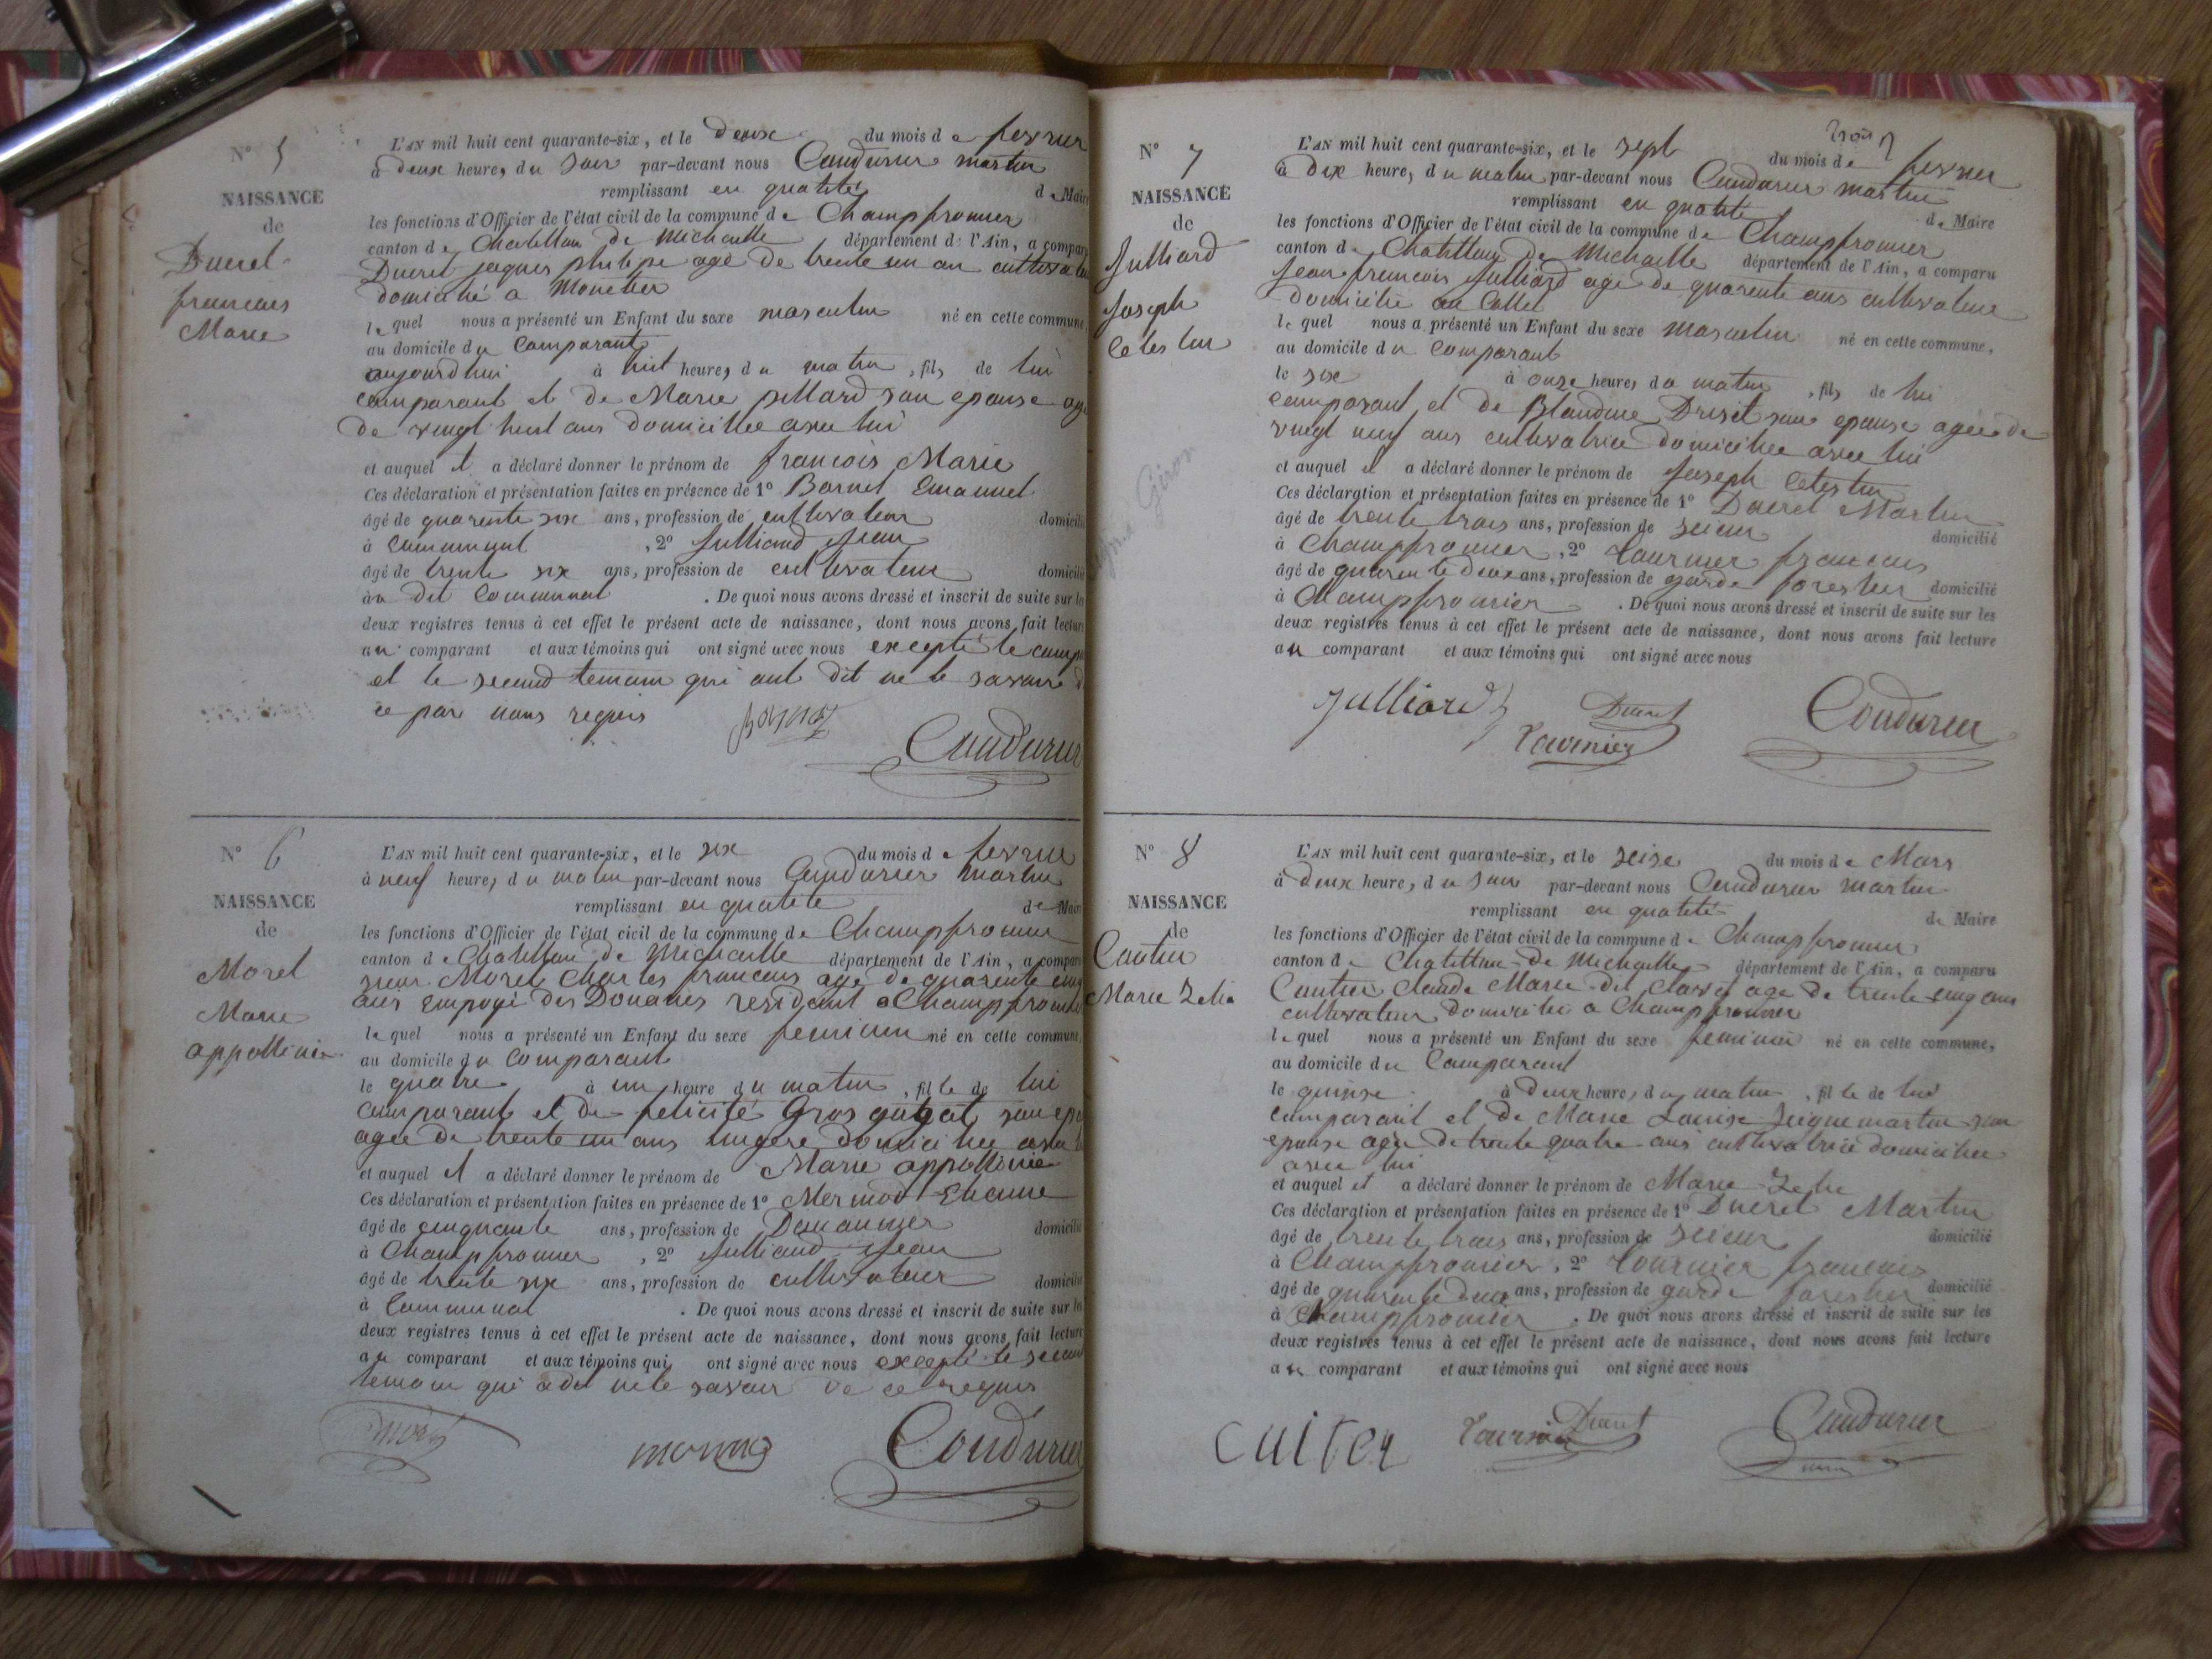 N° 5
NAISSANCE
de
Ducret
francois
Marie
L'AN mil huit cent quarante-six, et le deux du mois de fevrier
à deux heures du soir par-devant nous Coudurier martin
remplissant en qualité de Maire
les fonctions d'Officier de l'état civil de la commune de Champfromier
canton de Chatillon de Michaille département de l'Ain, a comparu
Ducret jaques philipe agé de trente un an cultivateur
domicilié a Monetier
lequel nous a présenté un Enfant du sexe masculin né en cette commune,
au domicile du Comparant
aujourdhui à huit heures du matin, fils de lui
comparant et de Marie pillard son epouse agée
de vingt huit ans domiciliée avec lui
et auquel il a déclaré donner le prénom de françois Marie
Ces déclaration et présentation faites en présence de 1° Bornet Emanuel
âgé de quarente six ans, profession de cultivateur domicilié
à Communal, 2° Julliand Jean
âgé de trente six ans, profession de cultivateur domicilié
au dit Communal. De quoi nous avons dressé et inscrit de suite sur les
deux registres tenus à cet effet le présent acte de naissance, dont nous avons fait lecture
au comparant et aux témoins qui ont signé avec nous excepté le comp
et le second temoin qui ont dit ne le savoir d
ce par nous requis
Coudurier
N° 6
NAISSANCE
de
Morel
Marie
appollinie
L'AN mil huit cent quarante-six, et le six du mois de fevrier
à neuf heures du matin par-devant nous Coudurier martin
remplissant en qualité de Maire
les fonctions d'Officier de l'état civil de la commune de Champfromier
canton de Chatillon de Michaille département de l'Ain, a comparu
sieur Morel Charles francois agé de quarente cinq
ans empoyé des Douanes residant a Champfromier
lequel nous a présenté un Enfant du sexe feminin né en cette commune,
au domicile du Comparant
le quatre à un heure du matin, fille de lui
comparant et de felicité Gros gugat son epouse
agée de trente un ans lingere domiciliée avec lui
et auquel il a déclaré donner le prénom de Marie appollinie
Ces déclaration et présentation faites en présence de 1° Mermod Etienne
âgé de cinquante ans, profession de Douannier domicilié
à Champfromier, 2° Julliand Jean
âgé de trente six ans, profession de cultivateur domicilié
à Communal. De quoi nous avons dressé et inscrit de suite sur les
deux registres tenus à cet effet le présent acte de naissance, dont nous avons fait lecture
au comparant et aux témoins qui ont signé avec nous excepté le second
temoin qui a dit ne le savoir de ce requis
Coudurier
N° 7
NAISSANCE
de
Julliard
Joseph
Celestin
L'AN mil huit cent quarante-six, et le sept du mois de fevrier
à dix heures du matin par-devant nous Coudurier martin
remplissant en qualité de Maire
les fonctions d'Officier de l'état civil de la commune de Champfromier
canton de Chatillon de Michaille département de l'Ain, a comparu
Jean francois Julliard agé de quarente ans cultivateur
domicilié au Collet
lequel nous a présenté un Enfant du sexe masculin né en cette commune,
au domicile du Comparant
le six à onze heures du matin, fils de lui
comparant et de Blandine Ducret son epouse agée de
vingt neuf ans cultivatrice domiciliée avec lui
et auquel il a déclaré donner le prénom de Joseph Celestin
Ces déclaration et présentation faites en présence de 1° Ducret Martin
âgé de trente trois ans, profession de scieur domicilié
à Champfromier, 2° Tournier francois
âgé de quarente deux ans, profession de garde forestier domicilié
à Champfromier. De quoi nous avons dressé et inscrit de suite sur les
deux registres tenus à cet effet le présent acte de naissance, dont nous avons fait lecture
au comparant et aux témoins qui ont signé avec nous
Julliard Ducret Coudurier
Tournier
N° 8
NAISSANCE
de
Coutier
Marie Zelie
L'AN mil huit cent quarante-six, et le seise du mois de Mars
à deux heures du soir par-devant nous Coudurier martin
remplissant en qualité de Maire
les fonctions d'Officier de l'état civil de la commune de Champfromier
canton de Chatillon de Michaille département de l'Ain, a comparu
Coutier Claude Marie dit agé de trente cinq ans
cultivateur domicilié a Champfromier
lequel nous a présenté un Enfant du sexe feminin né en cette commune,
au domicile du Comparant
le quinse à deux heures du matin, fille de lui
comparant et de Marie Louise Seignemartin son
epouse agée de trente quatre ans cultivatrice domiciliée
avec lui
et auquel il a déclaré donner le prénom de Marie Zelie
Ces déclaration et présentation faites en présence de 1° Ducret Martin
âgé de trente trois ans, profession de scieur domicilié
à Champfromier, 2° Tournier francois
âgé de quarente deux ans, profession de garde forestier domicilié
à Champfromier. De quoi nous avons dressé et inscrit de suite sur les
deux registres tenus à cet effet le présent acte de naissance, dont nous avons fait lecture
au comparant et aux témoins qui ont signé avec nous
Tournier Ducret Coudurier